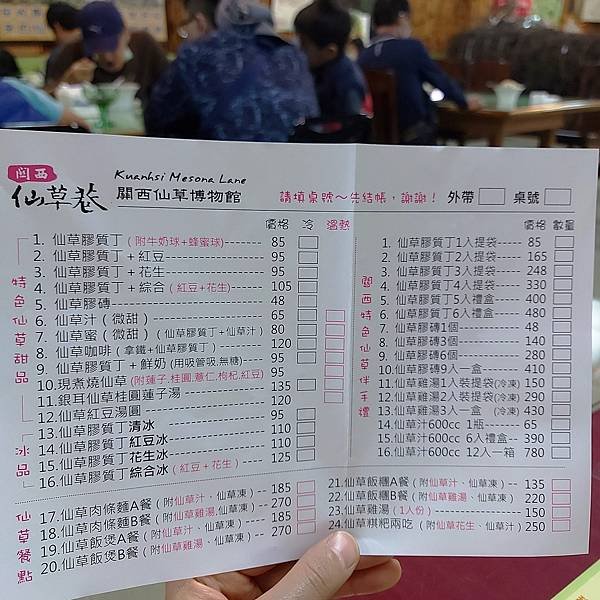 關西
仙草巷
Kuanhsi Mesona Lane
關西仙草博物館
請填桌號~先結帳,謝謝! 外帶 桌號
價格 冷 溫熱
特色仙草甜品
1. 仙草膠質丁(附牛奶球+蜂蜜球)------- 85
2. 仙草膠質丁+紅豆------- 95
3. 仙草膠質丁+花生------- 95
4. 仙草膠質丁+綜合(紅豆+花生)------ 105
5. 仙草膠磚------- 48
6. 仙草汁(微甜)------- 65
7. 仙草蜜(微甜)(仙草膠質丁+仙草汁) 80
8. 仙草咖啡(拿鐵+仙草膠質丁)------- 120
9. 仙草膠質丁+鮮奶(用吸管吸,無糖)---- 95
10.現煮燒仙草(附蓮子.桂圓.薏仁.枸杞.紅豆) 95
11.銀耳仙草桂圓蓮子湯 ------- 135
12.仙草紅豆湯圓------- 120
冰品
13.仙草膠質丁清冰 ------- 95
14.仙草膠質丁紅豆冰------- 110
15.仙草膠質丁花生冰------- 110
16.仙草膠質丁綜合冰(紅豆+花生)---- 125
仙草餐點
17.仙草肉條麵A餐(附仙草汁、仙草凍)-- 185
18.仙草肉條麵B餐(附仙草雞湯,仙草凍) 270
19.仙草飯煲A餐(附仙草汁、仙草凍)--- 185
20.仙草飯煲B餐(附仙草雞湯、仙草凍)-- 270
價格 數量
關西特色仙草伴手禮
1. 仙草膠質丁1人提袋----- 85
2. 仙草膠質丁2人提袋----- 165
3. 仙草膠質丁3人提袋----- 248
4. 仙草膠質丁4人提袋----- 330
5. 仙草膠質丁5人禮盒----- 400
6. 仙草膠質丁6人禮盒----- 480
7. 仙草膠磚1個------- 48
8. 仙草膠磚3個------- 140
9. 仙草膠磚6個------- 280
10.仙草膠磚9人一盒------ 410
11.仙草雞湯1人裝提袋(冷凍) 150
12.仙草雞湯2人裝提袋(冷凍) 290
13.仙草雞湯3人一盒 (冷凍) 430
14.仙草汁600cc 1瓶------ 65
15.仙草汁600cc 6人禮盒-- 390
16.仙草汁600cc 12入一箱 780
21.仙草飯糰A餐(附仙草汁、仙草凍)--- 135
22.仙草飯糰B餐(附仙草雞湯、仙草凍) 220
23.仙草雞湯(1人份)------- 150
24.仙草粿粑兩吃(附仙草花生、仙草汁) 250